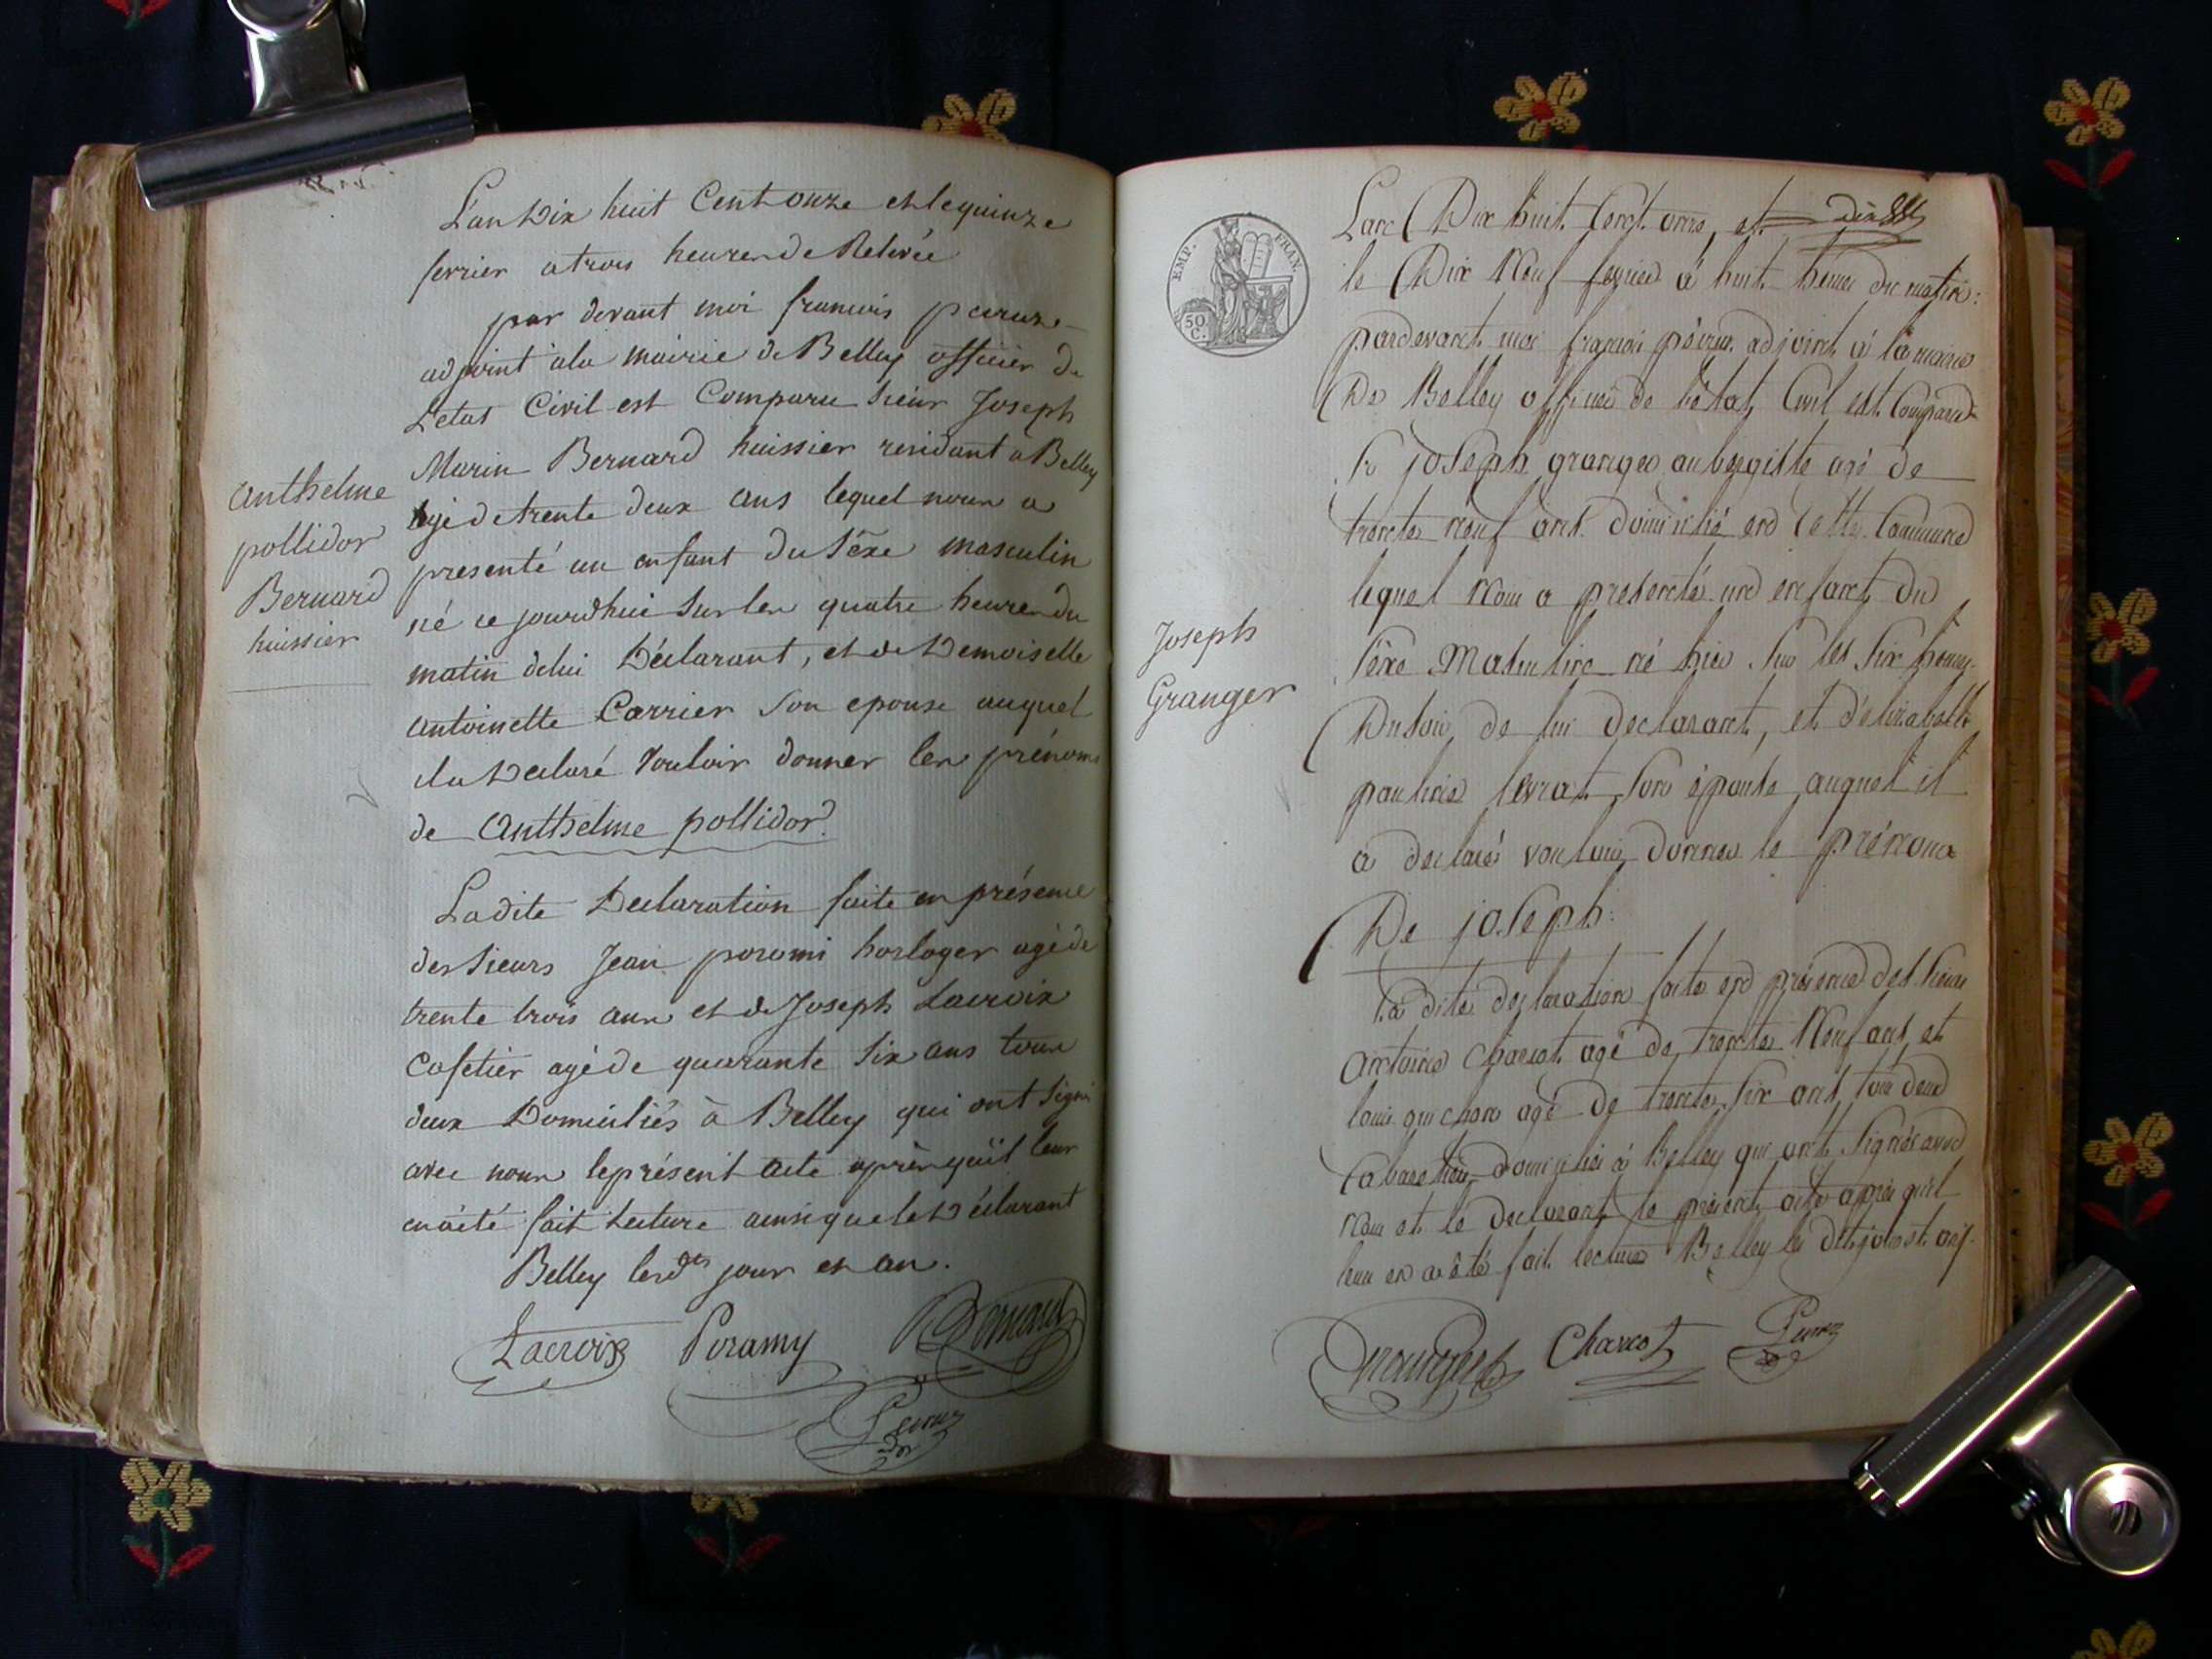 L'an Dix huit Cent onze et le quinze
fevrier a trois heures de Relevée
par devant moi francois peruze
adjoint a la mairie de Belley officier de
L'etat Civil est Comparu Sieur Joseph
Marin Bernard huissier residant a Belley
agé de trente deux ans lequel nous a
presenté un enfant du Séxe masculin
né ce jourdhui Sur les quatre heures du
matin de lui Déclarant, et de Demoiselle
antoinette Carrier Son epouse auquel
il a Declaré Vouloir donner les prénoms
de Anthelme pollidor.
La dite Declaration faite en présence
des Sieurs Jean poromi horloger agé de
trente trois ans et de Joseph Lacroix
Cafetier agé de quarante Six ans tous
deux Domiciliés à Belley qui ont Signé
avec nous le présent acte après qu'il leur
en a été fait Lecture ainsi que le Déclarant
Belley les dts jour et an.
Lacroix Poramy Bernard
Anthelme
pollidor
Bernard
huissier
EMP. FRAN.
50 C.
L'an Dix huit Cent onze, et
le Dix Neuf fevrier à huit heures du matin:
pardevant moi françois péruz adjoint à la mairie
De Belley officier de l'état Civil est Comparu
Sr joseph granger aubergiste agé de
trente neuf ans domicilié en Cette Commune
lequel Nous a présenté un enfant du
Séxe Masculin né hier Sur les Six heures
Du Soir de lui declarant, et d'elisabeth
pauline levrat Son épouse auquel il
a déclaré vouloir donner le prénom
De joseph.
La dite declaration faite en présence des Sieurs
antoine Charcot agé de trente Neuf ans et
louis guichon agé de trente Six ans tous deux
Cabaretiers domiciliés à Belley qui ont Signés avec
Nous et le declarant le présent acte après qu'il
leur en a été fait lecture Belley les dits jour et an
Granger Charcot
Joseph
Granger